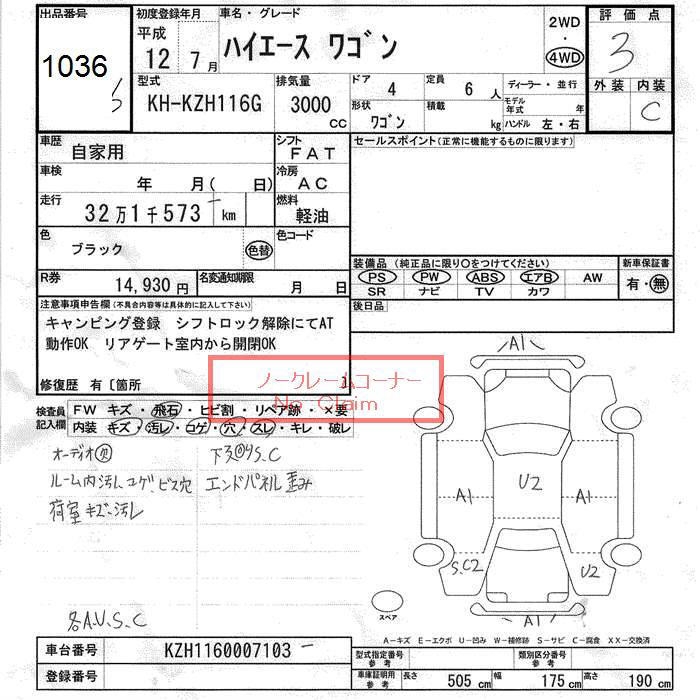 出品番号 初度登録年月 車名・グレード 評価点
1036
平成 12年 7月 ハイエース ワゴン 2WD・4WD 3
型式 排気量 ドア 4 定員 6人 ディーラー・並行 外装 内装
KH-KZH116G 3000cc 形状 ワゴン 積載 kg モデル年式 年 ハンドル 左・右 C
車歴 シフト セールスポイント(正常に機能するものに限ります)
自家用 FAT
車検 年 月(日) 冷房 AC
走行 32万1千573 km 燃料 軽油
色 ブラック 色替 色コード
装備品(純正品に限り○をつけてください) 新車保証書
PS PW ABS エアB AW 有・無
SR ナビ TV カワ
R券 14,930円 名変通知期限 月 日
後日品
注意事項申告欄(不具合内容等は具体的に記入して下さい)
キャンピング登録 シフトロック解除にてAT
動作OK リアゲート室内から開閉OK
修復歴 有〔箇所 〕
ノークレームコーナー
No Claim
検査員記入欄 FW キズ・飛石・ヒビ割・リペア跡・×要
内装 キズ・汚レ・コゲ・穴・スレ・キレ・破レ
オーディオ欠 S.C
ルーム内汚レ コゲ、ビス穴 エンドパネル歪み
荷室キズ汚レ
各A.U.S.C
A1
U2
A1 A1
S.C2 U2
A1
スペア
A-キズ E-エクボ U-凹み W-補修跡 S-サビ C-腐食 XX-交換済
車台番号 KZH1160007103
型式指定番号 参考 類別区分番号 参考
登録番号
車庫証明用 参考 長さ 505cm 幅 175cm 高さ 190cm